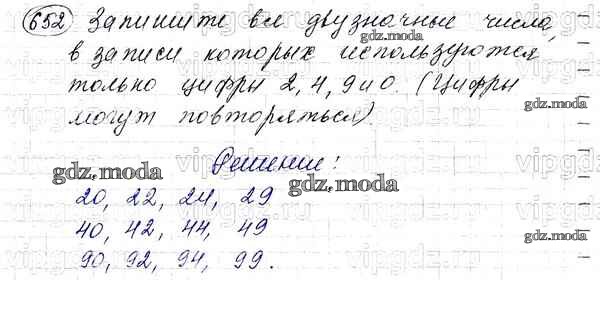 652 Запишите все двузначные числа,
в записи которых используются
только цифры 2, 4, 9 и 0. (Цифры
могут повторяться).
Решение:
20, 22, 24, 29
40, 42, 44, 49
90, 92, 94, 99.
gdz.moda
gdz.moda
gdz.moda
gdz.moda
gdz.moda
gdz.moda